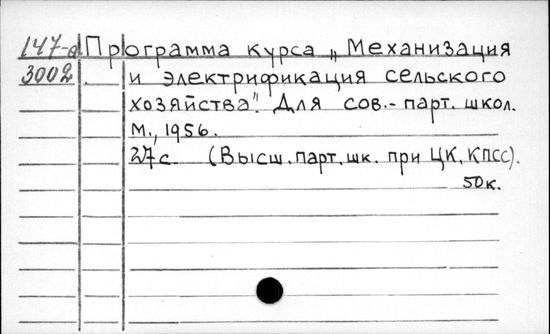 147-а Программа курса „Механизация
3002 и электрификация сельского
хозяйства". Для сов.-парт. школ.
М., 1956.
27 с. (Высш. парт. шк. при ЦК. КПСС).
50к.